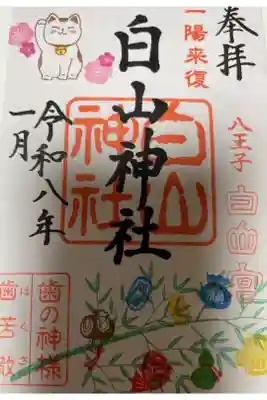 奉拝
一陽来復
八王子
白山宮
白山神社
白山神社
令和八年
一月
歯の神様
歯苦散
はくさ